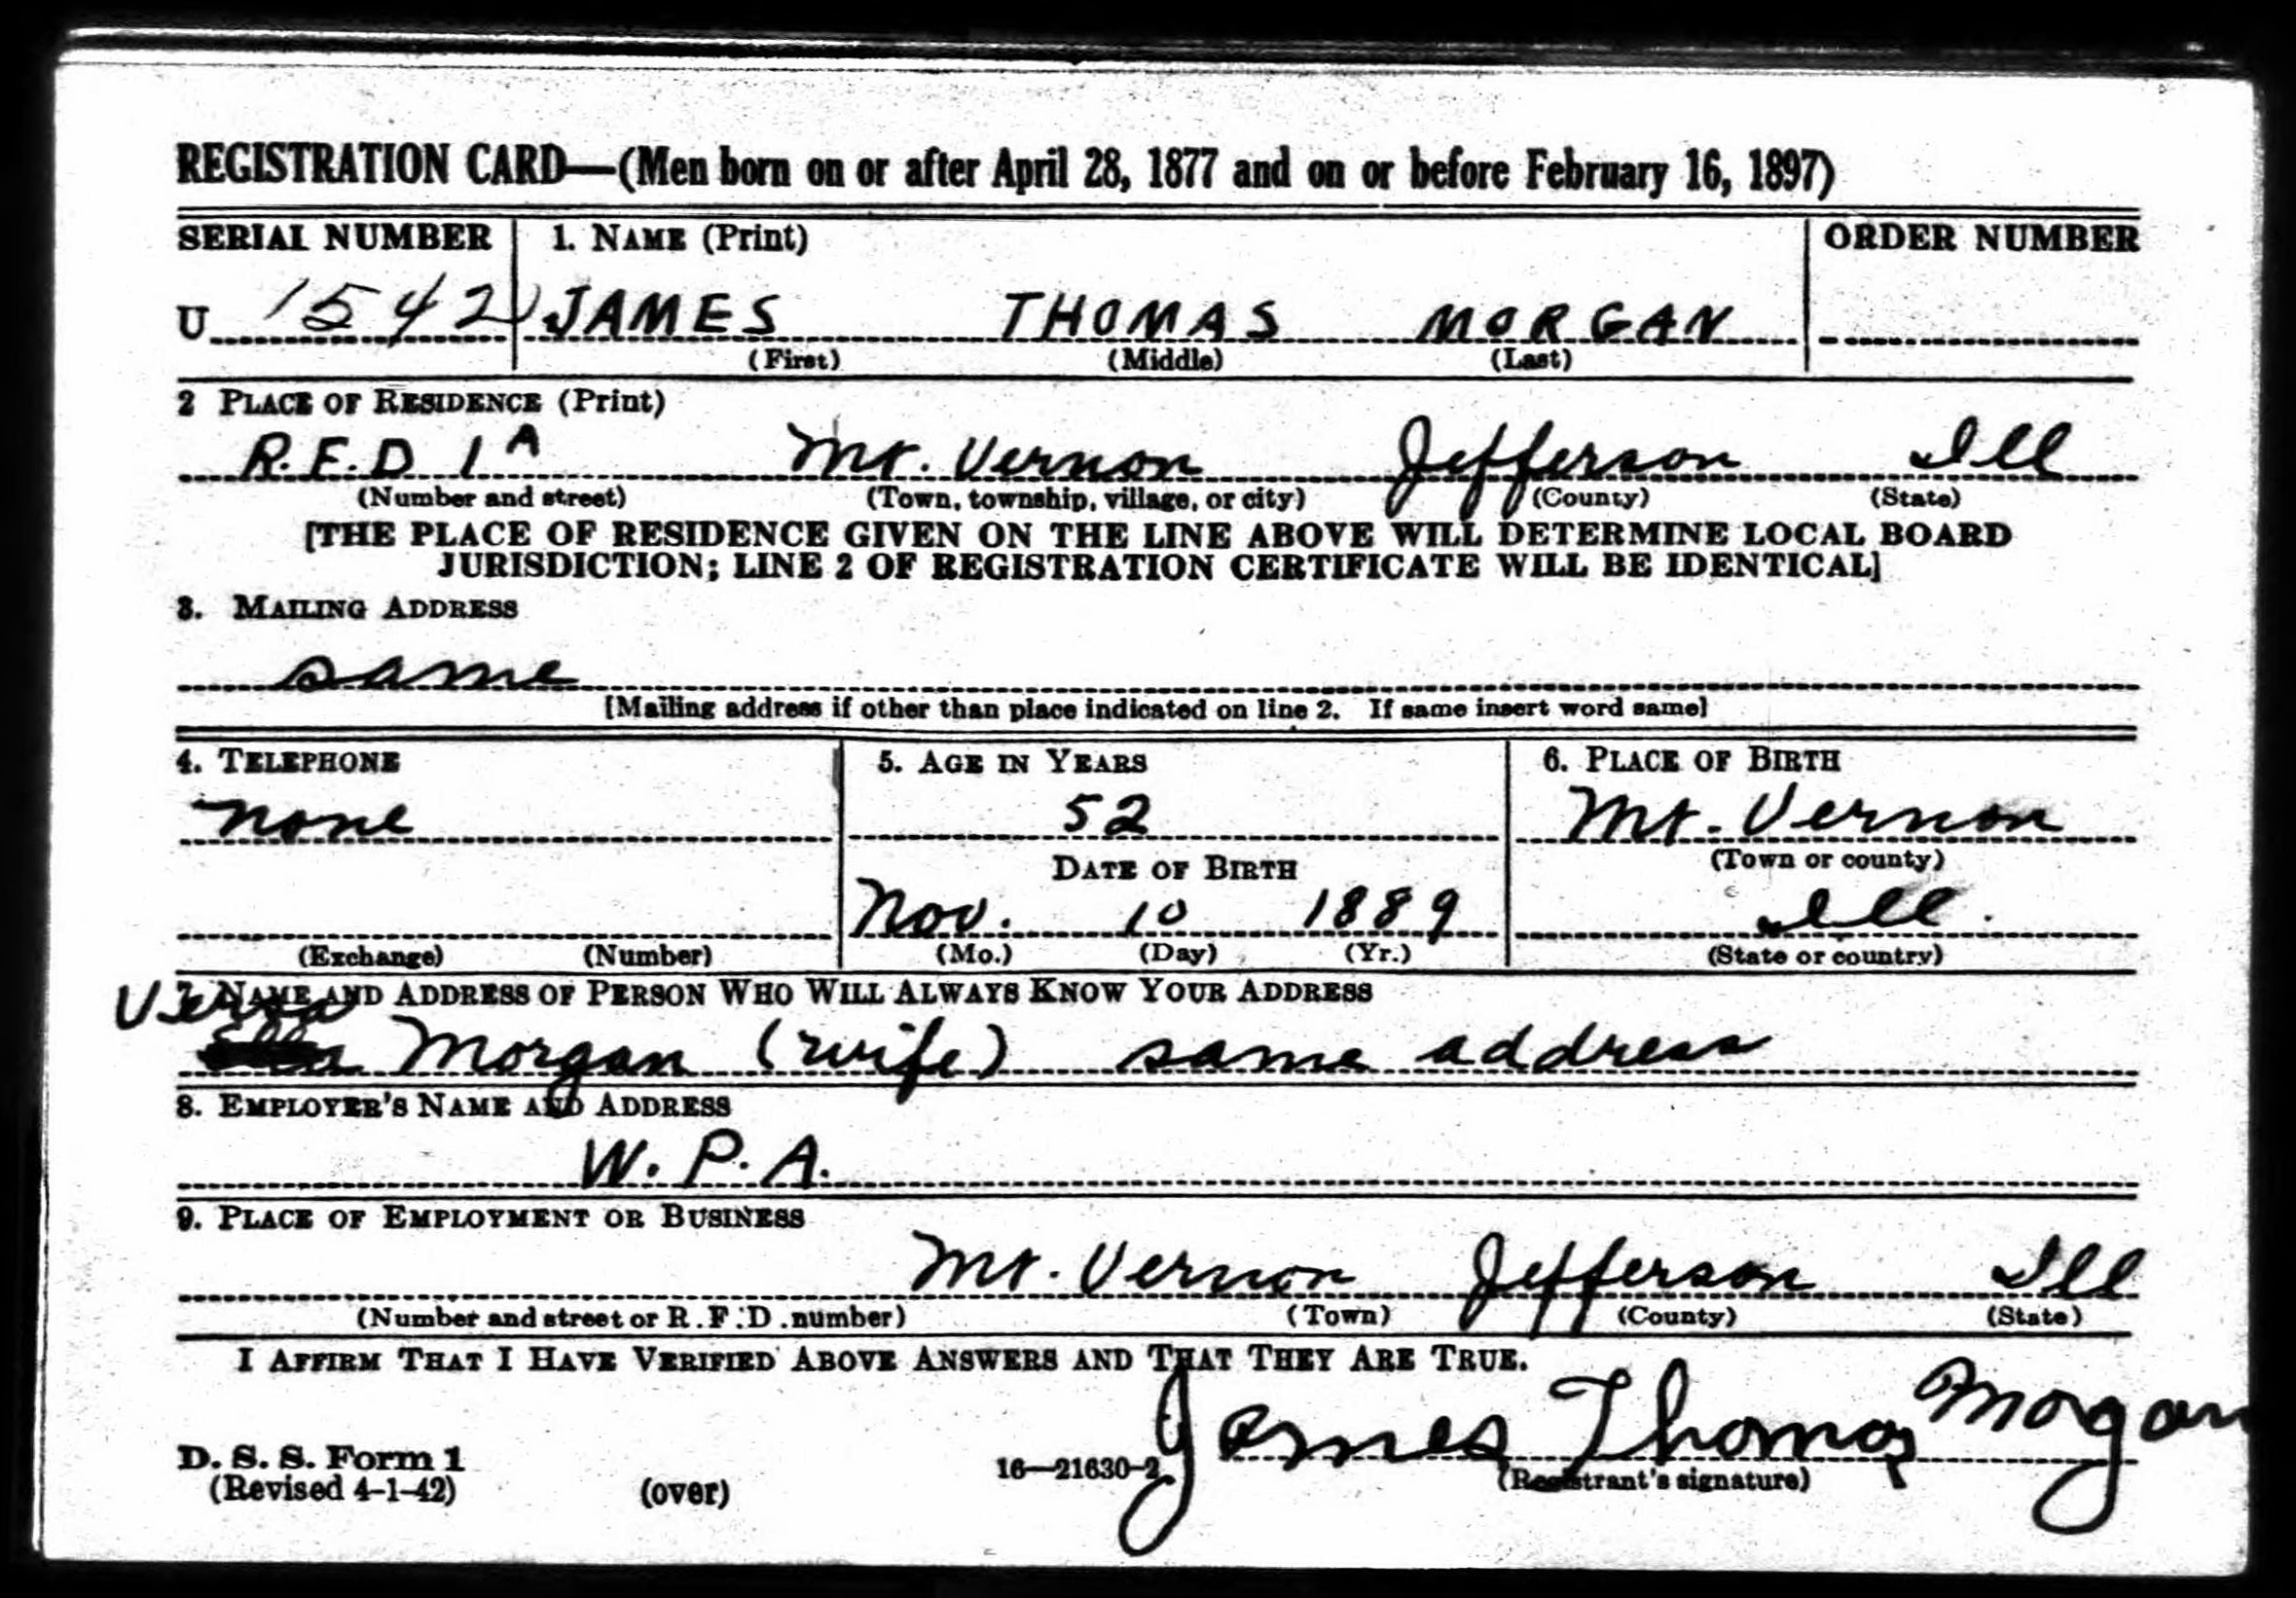 REGISTRATION CARD—(Men born on or after April 28, 1877 and on or before February 16, 1897)
SERIAL NUMBER 1. NAME (Print) ORDER NUMBER
U 1542 JAMES THOMAS MORGAN
(First) (Middle) (Last)
2 PLACE OF RESIDENCE (Print)
R.F.D 1A Mt. Vernon Jefferson Ill
(Number and street) (Town, township, village, or city) (County) (State)
[THE PLACE OF RESIDENCE GIVEN ON THE LINE ABOVE WILL DETERMINE LOCAL BOARD
JURISDICTION; LINE 2 OF REGISTRATION CERTIFICATE WILL BE IDENTICAL]
3. MAILING ADDRESS
same
[Mailing address if other than place indicated on line 2. If same insert word same]
4. TELEPHONE 5. AGE IN YEARS 6. PLACE OF BIRTH
none 52 Mt. Vernon
DATE OF BIRTH (Town or county)
Nov. 10 1889 Ill.
(Exchange) (Number) (Mo.) (Day) (Yr.) (State or country)
7. NAME AND ADDRESS OF PERSON WHO WILL ALWAYS KNOW YOUR ADDRESS
Morgan (wife) same address
8. EMPLOYER'S NAME AND ADDRESS
W. P. A.
9. PLACE OF EMPLOYMENT OR BUSINESS
Mt. Vernon Jefferson Ill
(Number and street or R.F.D. number) (Town) (County) (State)
I AFFIRM THAT I HAVE VERIFIED ABOVE ANSWERS AND THAT THEY ARE TRUE.
James Thomas Morgan
D. S. S. Form 1 16—21630-2 (Registrant's signature)
(Revised 4-1-42) (over)